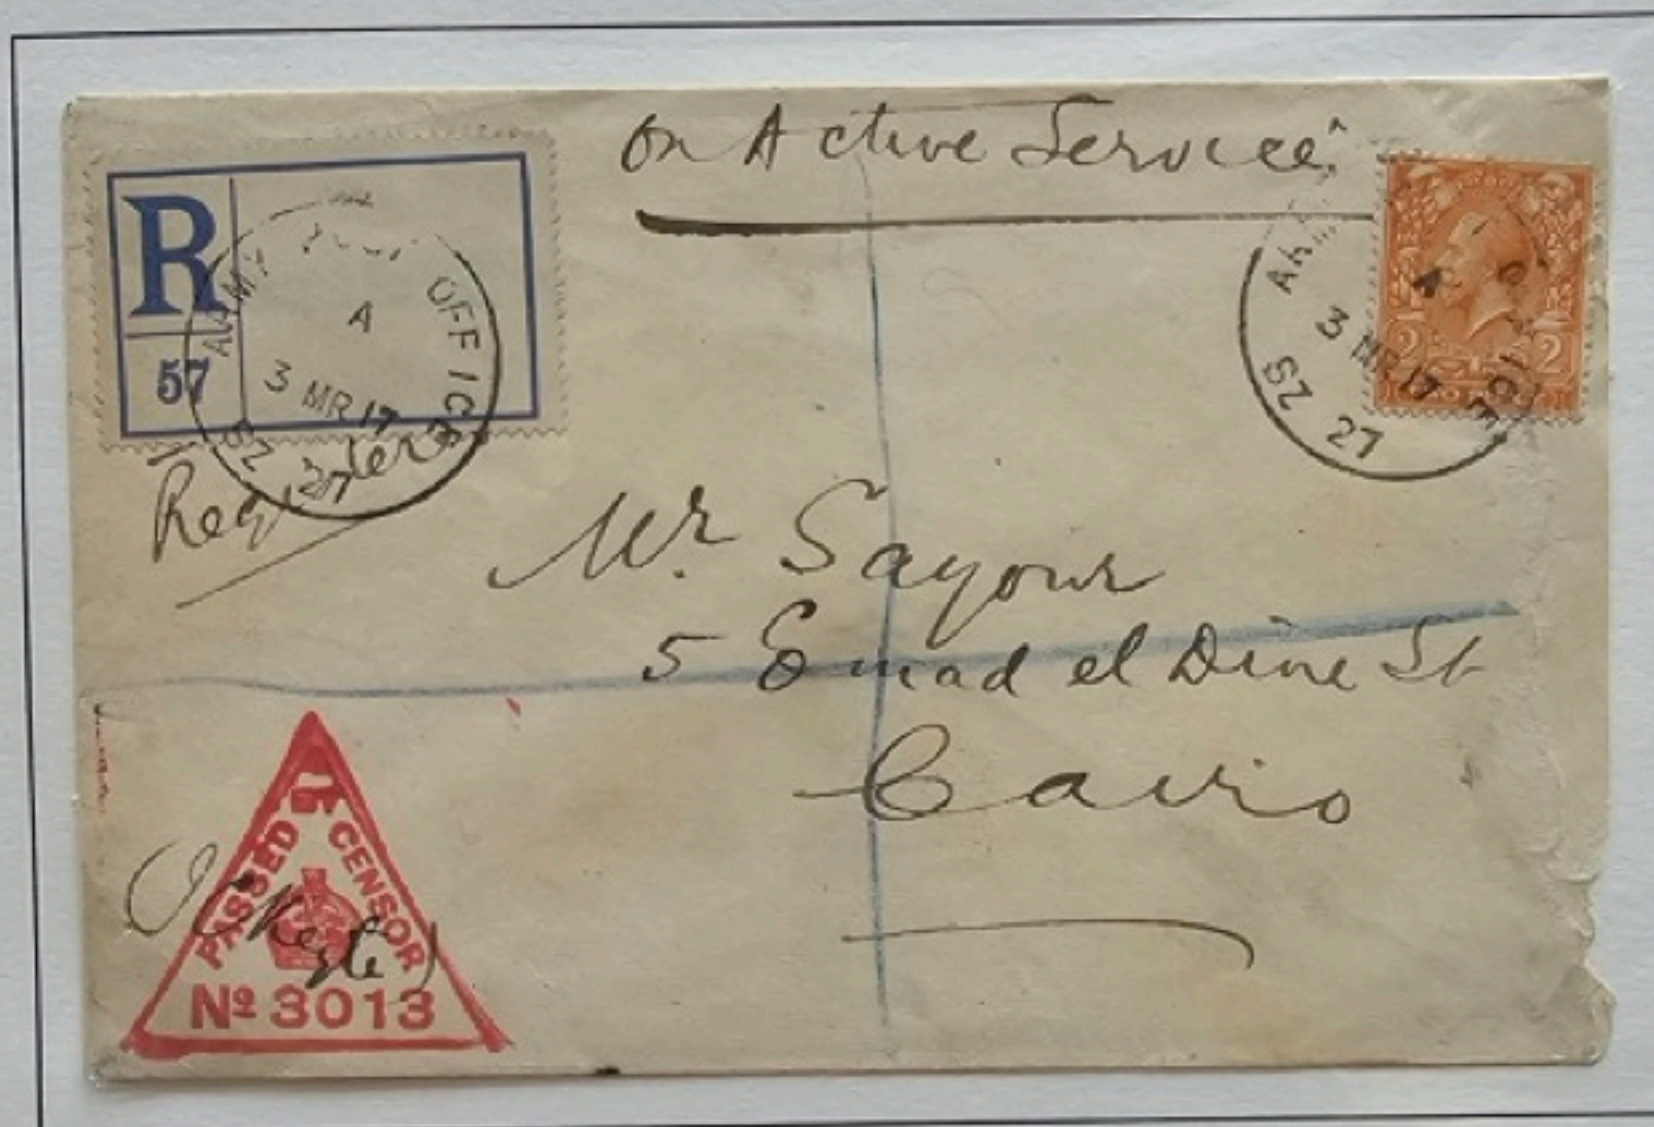 On Active Service.
R
57
ARMY POST OFFICE
A
3 MR 17
SZ 27
Registered
ARMY
OFFICE
A
3 MR 17
SZ 27
2 2
Mr. Sayour
5 Emad el Dine St
Cairo
PASSED BY CENSOR
Nº 3013